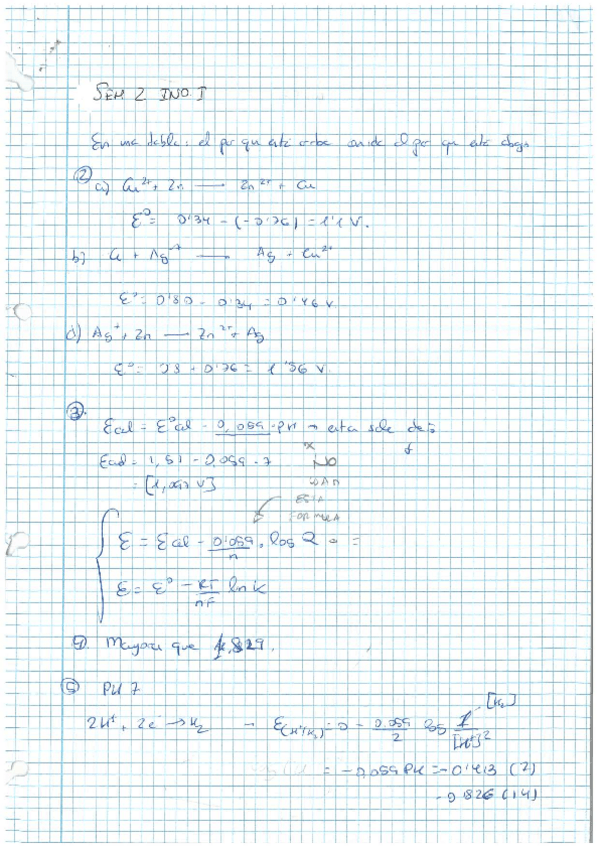 SEM 2 INO.I
En una tabla: el par que está arriba oxida el par que está abajo
② a) Cu²⁺ + Zn → Zn²⁺ + Cu
Ɛ° = 0'34 - (-0'76) = 1'1 V.
b) Cu + Ag⁺ → Ag + Cu²⁺
Ɛ° = 0'80 - 0'34 = 0'46 V
c) Ag⁺ + Zn → Zn²⁺ + Ag
Ɛ° = 0'8 + 0'76 = 1'56 V.
③.
Ɛcal = Ɛ°cal - 0,059 · pH → esta sale de
Ɛcal = 1,51 - 0,059 · 7
NO
= [1,097 V]
ESTA
FORMULA
Ɛ = Ɛcal - 0'059/n · log Q =
Ɛ = Ɛ° - RT/nF ln K
④. Mayores que 1,229.
⑤ PH 7
2H⁺ + 2e⁻ → H₂ → Ɛ(H⁺/H₂) = 0 - 0.059/2 log [H₂]/[H⁺]²
= -0'059 PH = -0'413 (7)
-0'826 (14)